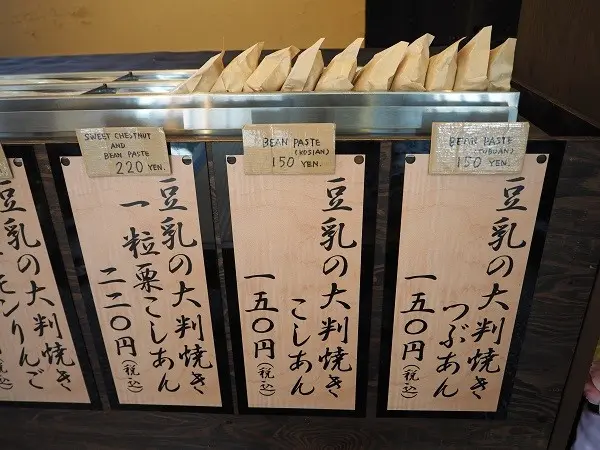 SWEET CHESTNUT
AND
BEAN PASTE
220 YEN.
BEAN PASTE
(KOSIAN)
150 YEN.
BEAN PASTE
(TUBUAN)
150 YEN.
豆乳の大判焼き
つぶあん
一五〇円(税込)
豆乳の大判焼き
こしあん
一五〇円(税込)
豆乳の大判焼き
一粒栗こしあん
二二〇円(税込)
豆乳の大判焼き
モンりんご